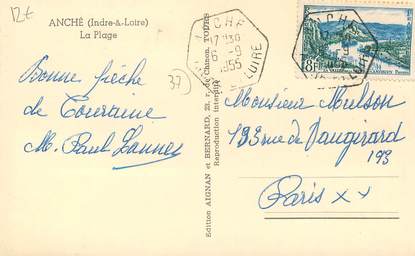 12€
ANCHÉ (Indre-&-Loire)
La Plage
37
Bonne pêche
de Touraine
M. Paul Lannes
Edition AIGNAN et BERNARD, 23, r. de Chanson, TOURS
Reproduction interdite
ANCHÉ
17 H30
6 -9
1955
LOIRE
8F
Monsieur Mulson
193 rue de Vaugirard
193
Paris XV